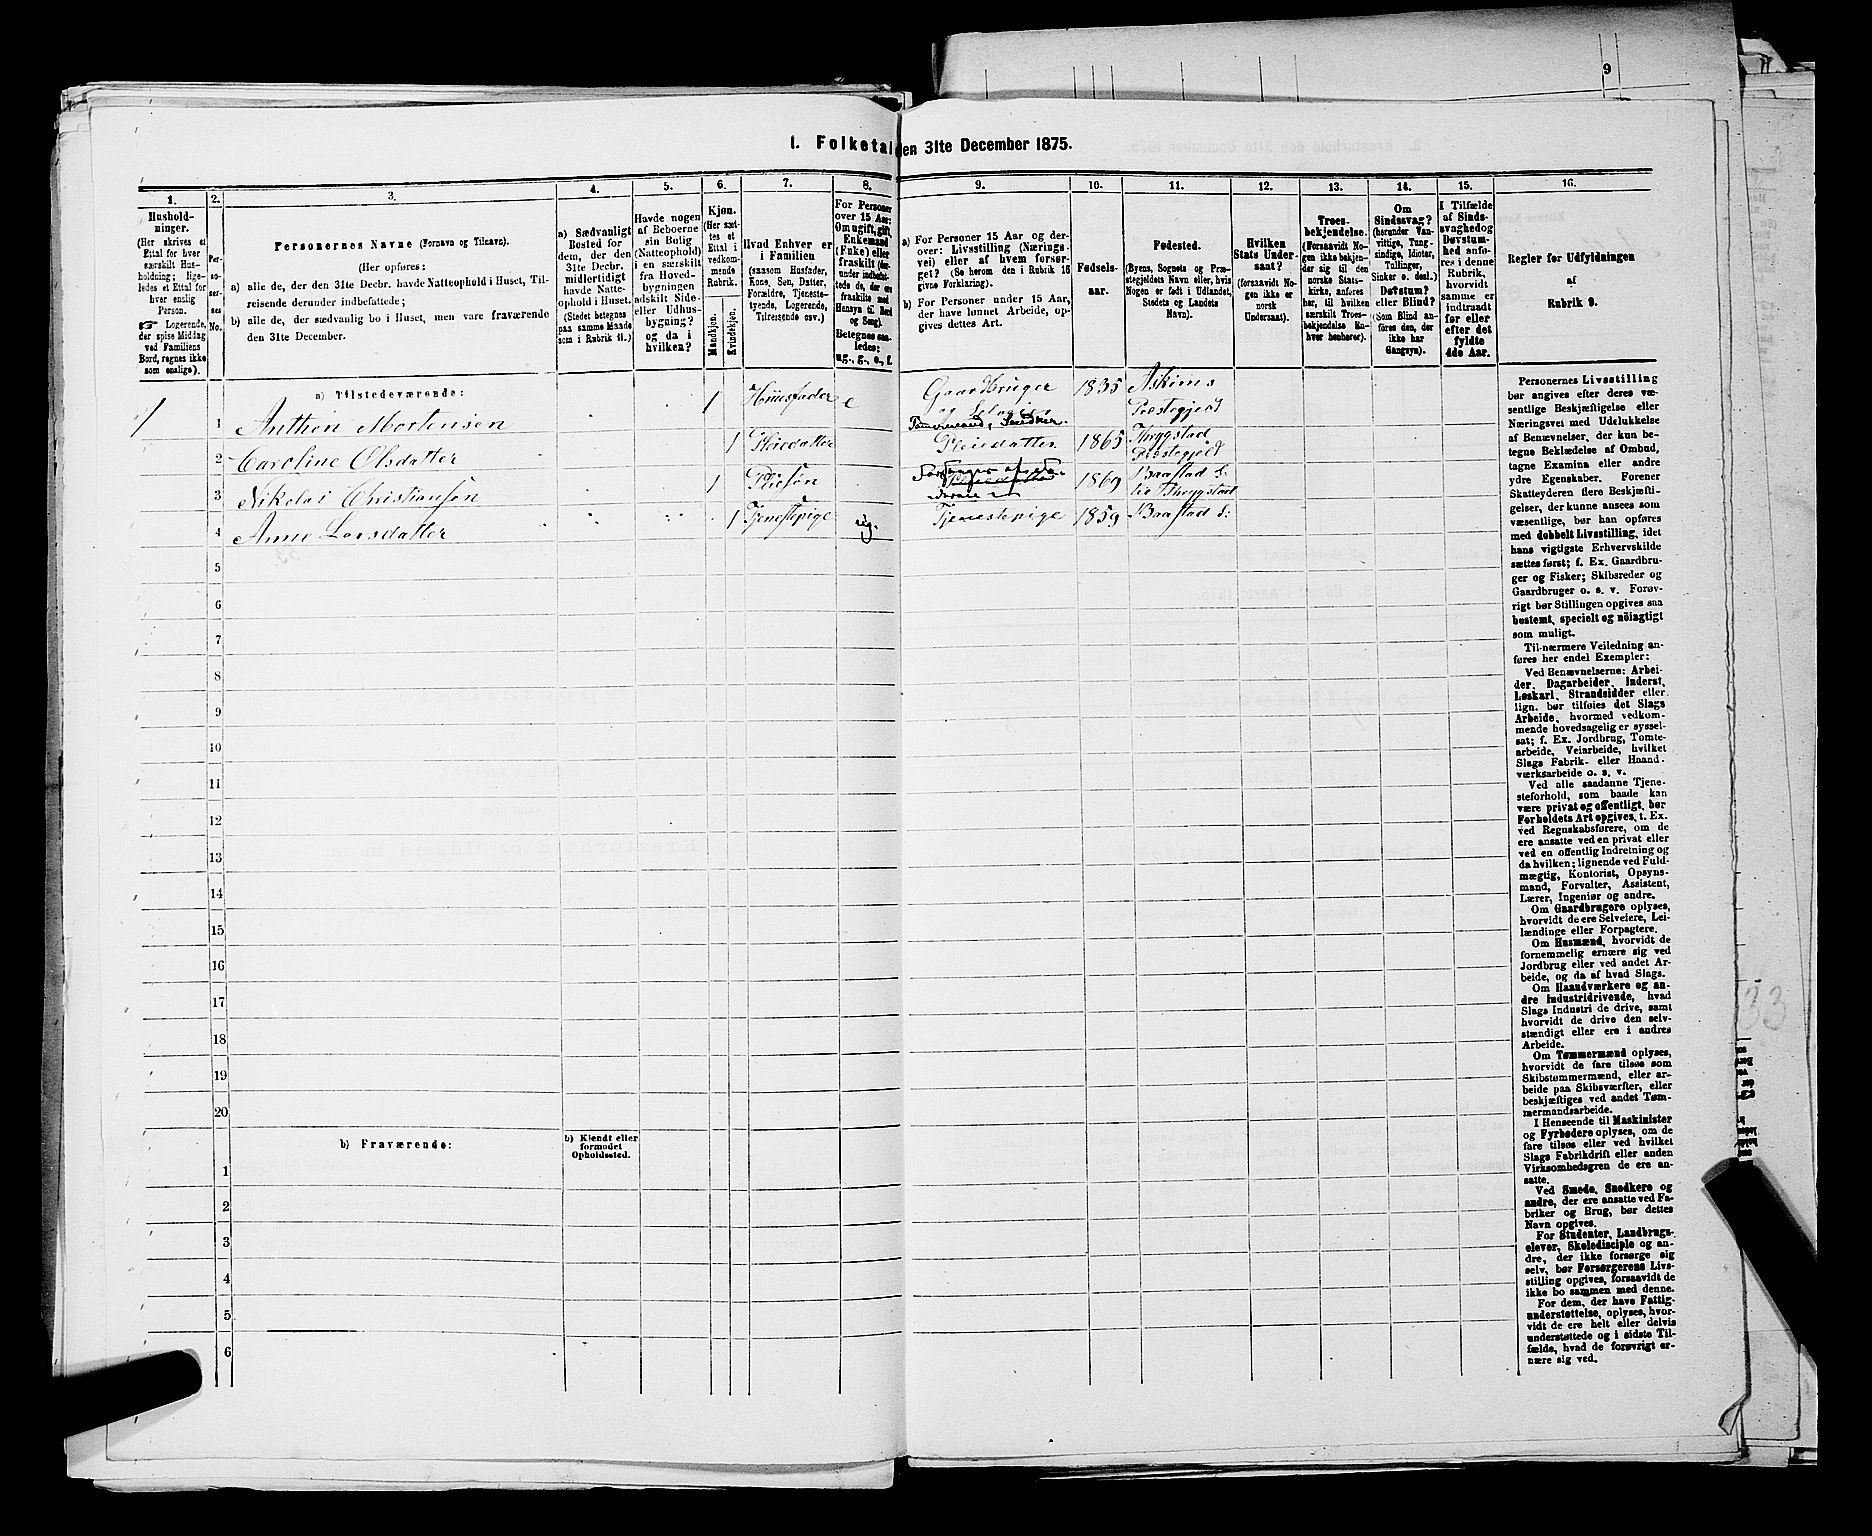 9
1. Folketal
den 31te December 1875.
1.
2.
3.
4.
5.
6.
7.
8.
9.
10.
11.
12.
13.
14.
15.
16.
Hushold-
ninger.
(Her skrives et
Ettal for hver
særskilt Hus-
holdning; lige-
ledes et Ettal for
hver enslig
Person.
☞ Logerende,
der spise Middag
ved Familiens
Bord, regnes ikke
som enslige).
Per-
so-
ner-
nes
No.
Personernes Navne (Fornavn og Tilnavn).
(Her opføres:
a) alle de, der den 31te Decbr. havde Natteophold i Huset, Til-
reisende derunder indbefattede;
b) alle de, der sædvanlig bo i Huset, men vare fraværende
den 31te December.
a) Sædvanligt
Bosted for
dem, der den
31te Decbr.
midlertidigt
havde Natte-
ophold i Huset.
(Stedet betegnes
paa samme Maade
som i Rubrik 11.)
Havde nogen
af Beboerne
sin Bolig
(Natteophold)
i en særskilt
fra Hoved-
bygningen
adskilt Side-
eller Udhus-
bygning?
og da i
hvilken?
Kjøn.
(Her sæt-
tes et
Ettal i
vedkom-
mende
Rubrik.
Mandkjøn.
Kvindekjøn.
Hvad Enhver er
i Familien
(saasom Husfader,
Kone, Søn, Datter,
Forældre, Tjeneste-
tyende, Logerende,
Tilreisende osv.)
For Personer
over 15 Aar:
Om ugift, gift,
Enkemand
(Enke) eller
fraskilt (der-
under indbefat-
tede de, der ere
fraskilte med
Hensyn til Bord
og Seng).
Betegnes saa-
ledes:
ug., g., e., f.
a) For Personer 15 Aar og der-
over: Livsstilling (Nærings-
vei) eller af hvem forsør-
get? (Se herom den i Rubrik 16
givne Forklaring).
b) For Personer under 15 Aar,
der have lønnet Arbeide, op-
gives dettes Art.
Fødsels-
aar.
Fødested.
(Byens, Sognets og Præ-
stegjeldets Navn eller, hvis
Nogen er født i Udlandet,
Stedets og Landets
Navn).
Hvilken
Stats Under-
saat?
(forsaavidt No-
gen ikke er
norsk
Undersaat).
Troes-
bekjendelse.
(Forsaavidt No-
gen ikke bekjen-
der sig til den
norske Stats-
kirke, anføres
her, til hvilken
særskilt Troes-
bekjendelse En-
hver henhører).
Om
Sindssvag?
(herunder Van-
vittige, Tung-
sindige, Idioter,
Tullinger,
Sinker o. desl.)
Døvstum?
eller Blind?
(Som Blind an-
føres den, der
ikke har
Gangsyn).
I Tilfælde
af Sinds-
svaghed og
Døvstum-
hed anfø-
res i denne
Rubrik,
hvorvidt
samme er
indtraadt
før eller
efter det
fyldte
4de Aar.
Regler for Udfyldningen
af
Rubrik 9.
a) Tilstedeværende:
1 1 Anthon Mortensen 1 Huusfader e Gaardbruger 1835 Askims
Prestegjeld
Tømmermand, Snedker.
2 Caroline Olsdatter 1 Pleiedatter Pleiedatter 1865 Thrygstad
Prestegjeld
3 Nikolai Christiansen 1 Pliesøn 1869 Baastad S:
Thrygstad
4 Anne Larsdatter 1 Tjenestepige ug. Tjenestepige 1859 Baastad S:
5
6
7
8
9
10
11
12
13
14
15
16
17
18
19
20
b) Fraværende:
b) Kjendt eller
formodet
Opholdssted.
1
2
3
4
5
6
Personernes Livsstilling
bør angives efter deres væ-
sentlige Beskjæftigelse eller
Næringsvei med Udelukkelse
af Benævnelser, der kun be-
tegne Beklædelse af Ombud,
tagne Examina eller andre
ydre Egenskaber. Forener
Skatteyderen flere Beskjæfti-
gelser, der kunne ansees som
væsentlige, bør han opføres
med dobbelt Livsstilling, idet
hans vigtigste Erhvervskilde
sættes først; f. Ex. Gaardbru-
ger og Fisker; Skibsreder og
Gaardbruger o. s. v. Forøv-
rigt bør Stillingen opgives saa
bestemt, specielt og nöiagtigt
som muligt.
Til nærmere Veiledning an-
føres her endel Exempler:
Ved Benævnelserne: Arbei-
der, Dagarbeider, Inderst,
Løskarl, Strandsidder eller
lign. bør tilføies det Slags
Arbeide, hvormed vedkom-
mende hovedsagelig er syssel-
sat; f. Ex. Jordbrug, Tomte-
arbeide, Veiarbeide, hvilket
Slags Fabrik- eller Haand-
værksarbeide o. s. v.
Ved alle saadanne Tjene-
steforhold, som baade kan
være privat og offentligt, bør
Forholdets Art opgives, t. Ex.
ved Regnskabsførere, om de
ere ansatte ved en privat eller
ved en offentlig Indretning og
da hvilken; lignende ved Fuld-
mægtig, Kontorist, Opsyns-
mand, Forvalter, Assistent,
Lærer, Ingeniør og andre.
Om Gaardbrugere oplyses,
hvorvidt de ere Selveiere, Lei-
lændinge eller Forpagtere.
Om Husmænd, hvorvidt de
fornemmelig ernære sig ved
Jordbrug eller ved andet Ar-
beide, og da af hvad Slags.
Om Haandværkere og an-
dre Industridrivende, hvad
Slags Industri de drive, samt
hvorvidt de drive den selv-
stændigt eller ere i andres
Arbeide.
Om Tømmermænd oplyses,
hvorvidt de fare tilsøs som
Skibstømmermænd, eller ar-
beide paa Skibsværfter, eller
beskjæftiges ved andet Tøm-
mermandsarbeide.
I Henseende til Maskinister
og Fyrbødere oplyses, om de
fare tilsøs eller ved hvilket
Slags Fabrikdrift eller anden
Virksomhedsgren de ere an-
satte.
Ved Smede, Snedkere og
andre, der ere ansatte ved Fa-
briker og Brug, bør dettes
Navn opgives.
For Studenter, Landbrugs-
elever, Skoledisciple og an-
dre, der ikke forsørge sig
selv, bør Forsørgerens Livs-
stilling opgives, forsaavidt de
ikke bo sammen med denne.
For dem, der have Fattig-
understøttelse, oplyses, hvor-
vidt de ere helt eller delvis
understøttede og i sidste Til-
fælde, hvad de forøvrigt er-
nære sig ved.
33